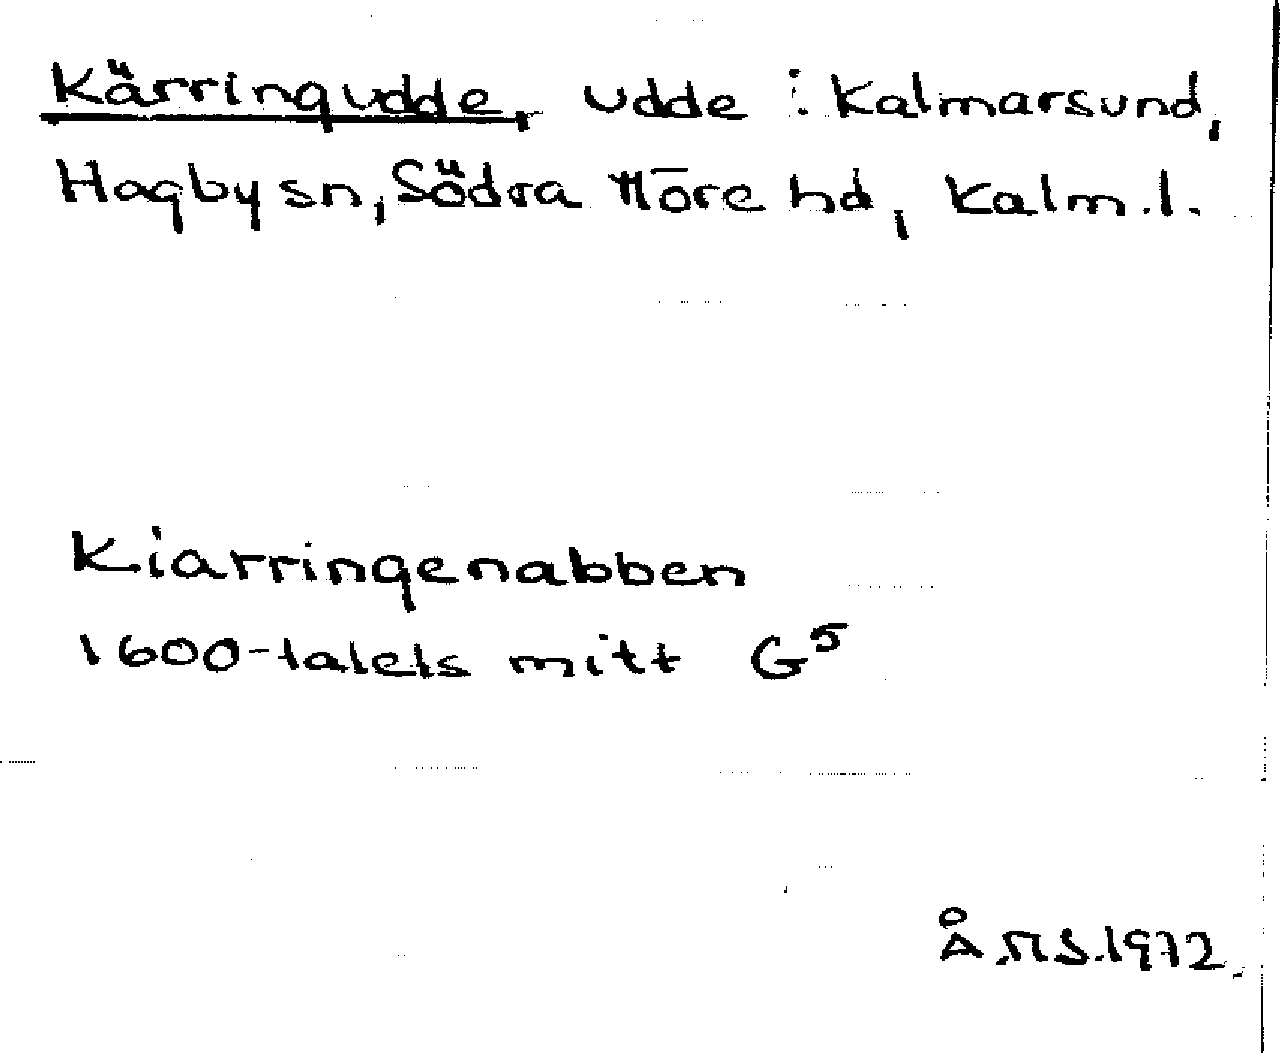 Kärringudde, udde i Kalmarsund,
Hagby sn, Södra Möre hd, Kalm.l.
Kiarringenabben
1600-talets mitt G5
Å.M.S. 1972